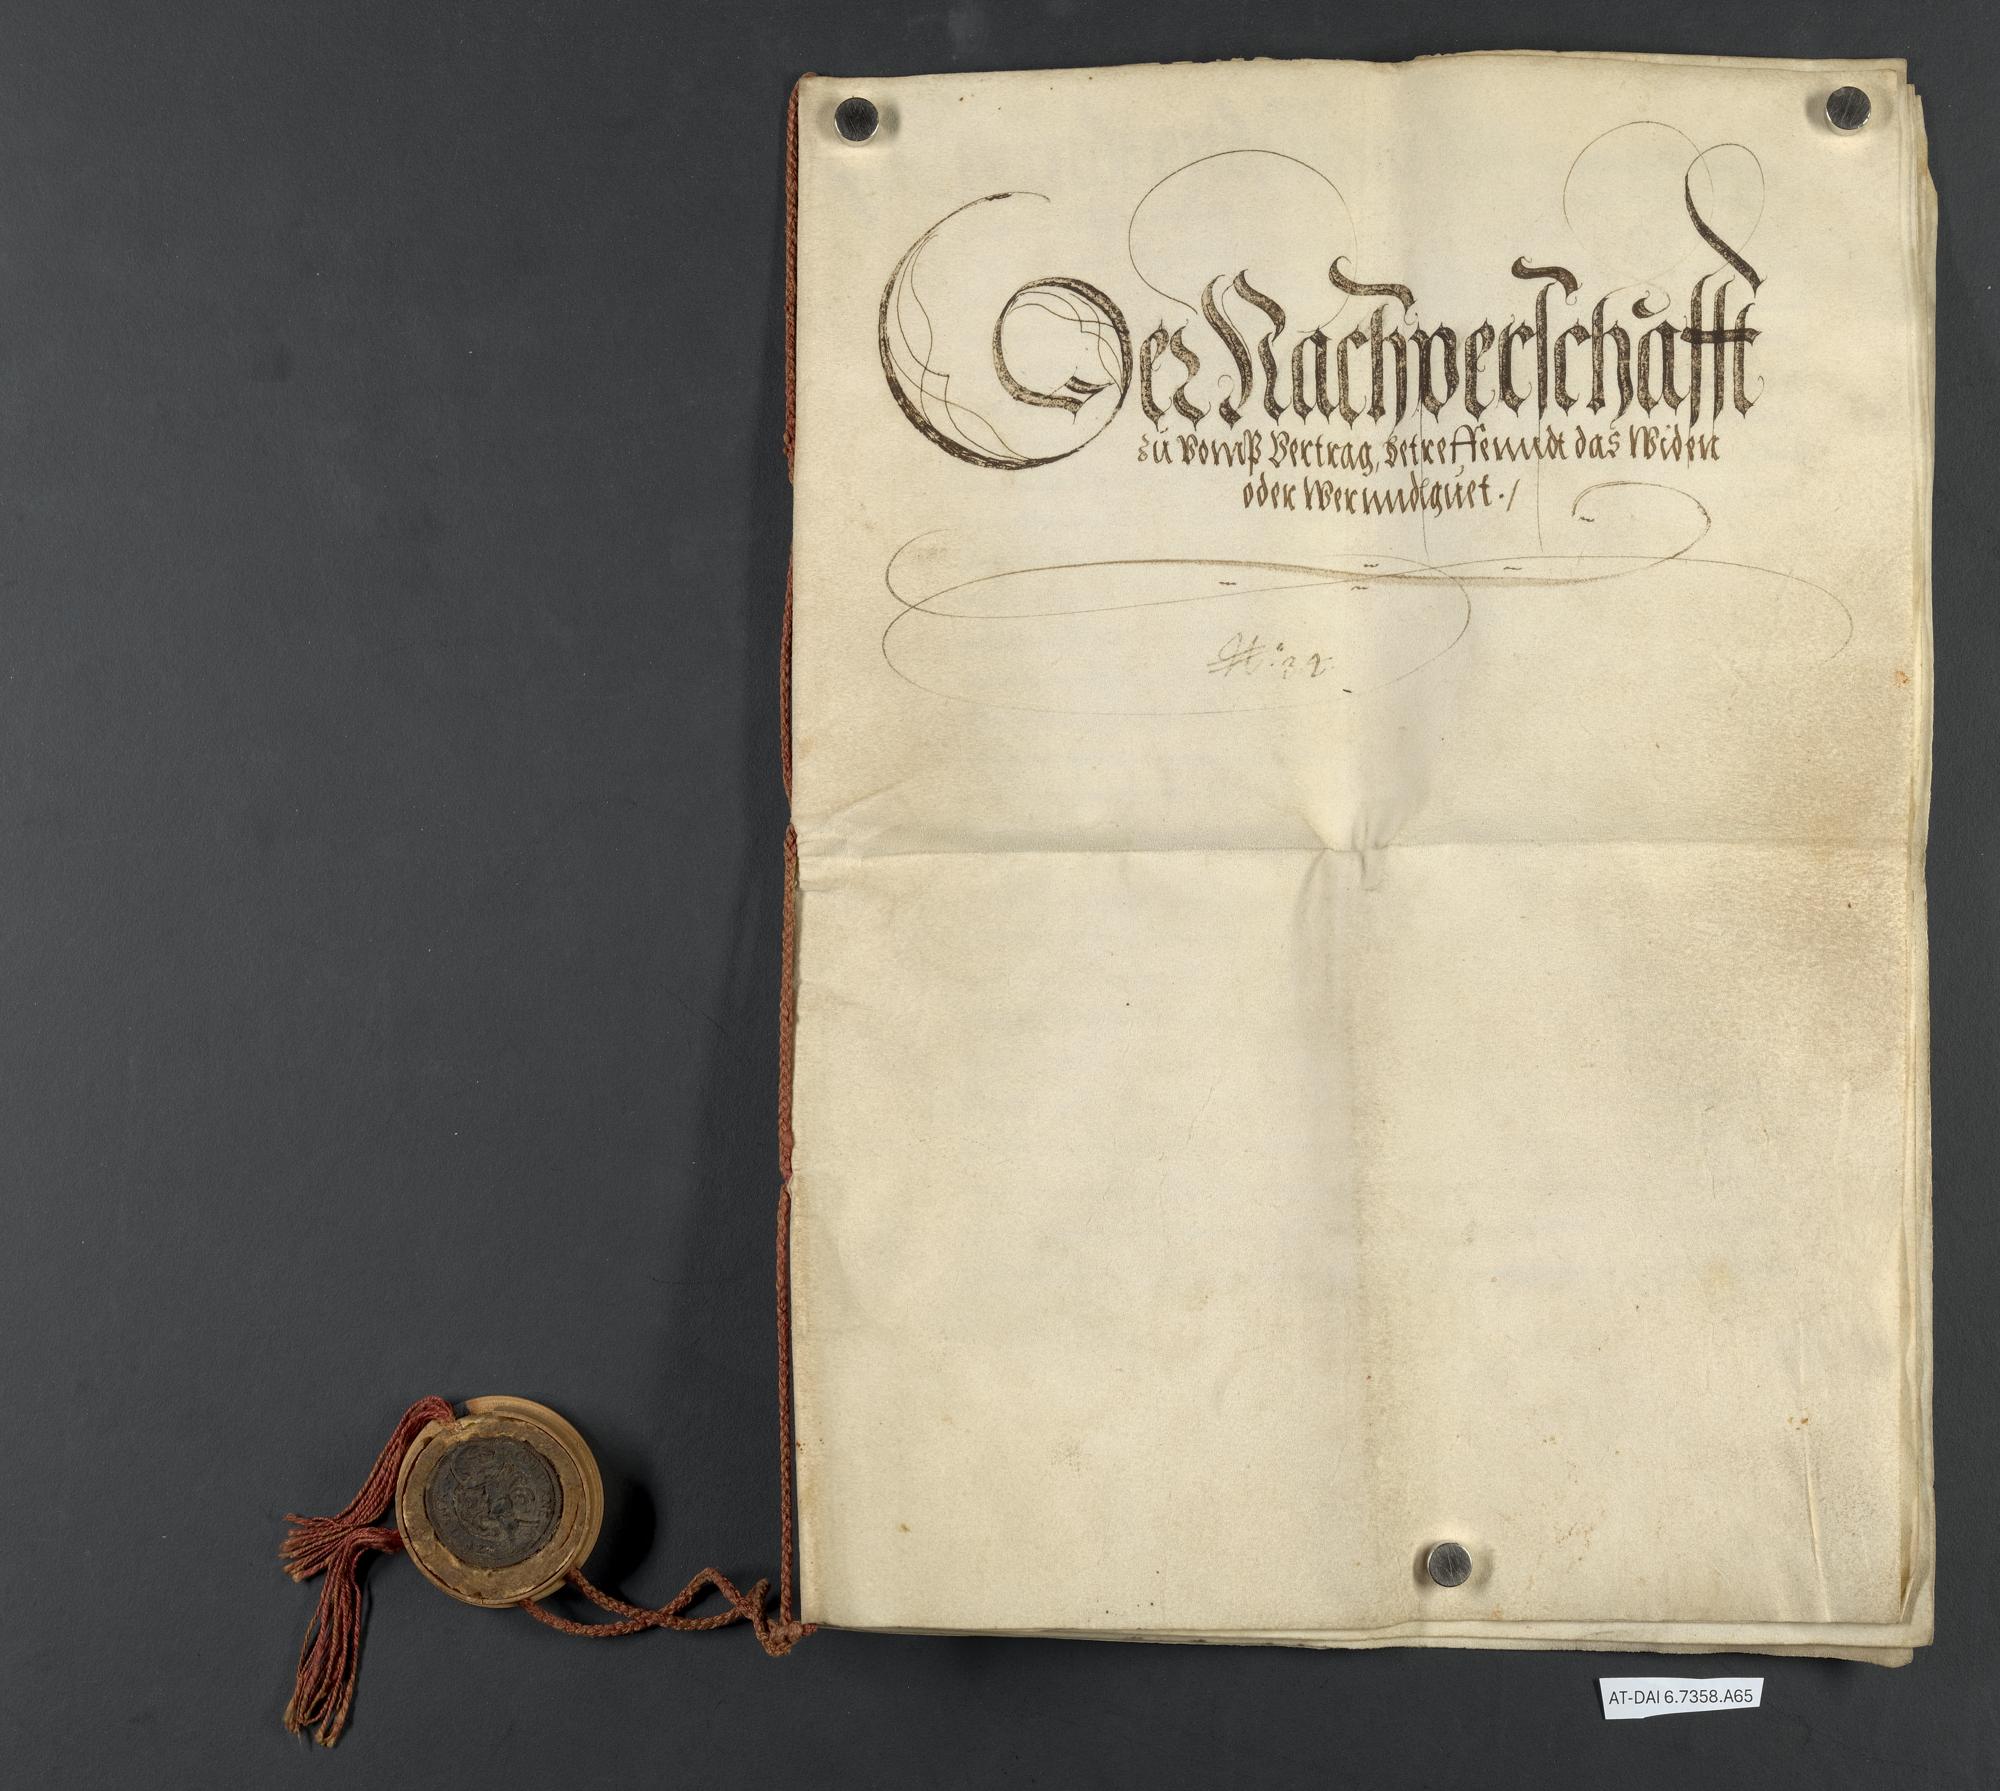 Der Nachperschafft
zu Vomp Vertrag, betreffenndt das Widen
oder Wer unndlguet ./
N:° 32.
AT-DAI 6.7358.A65